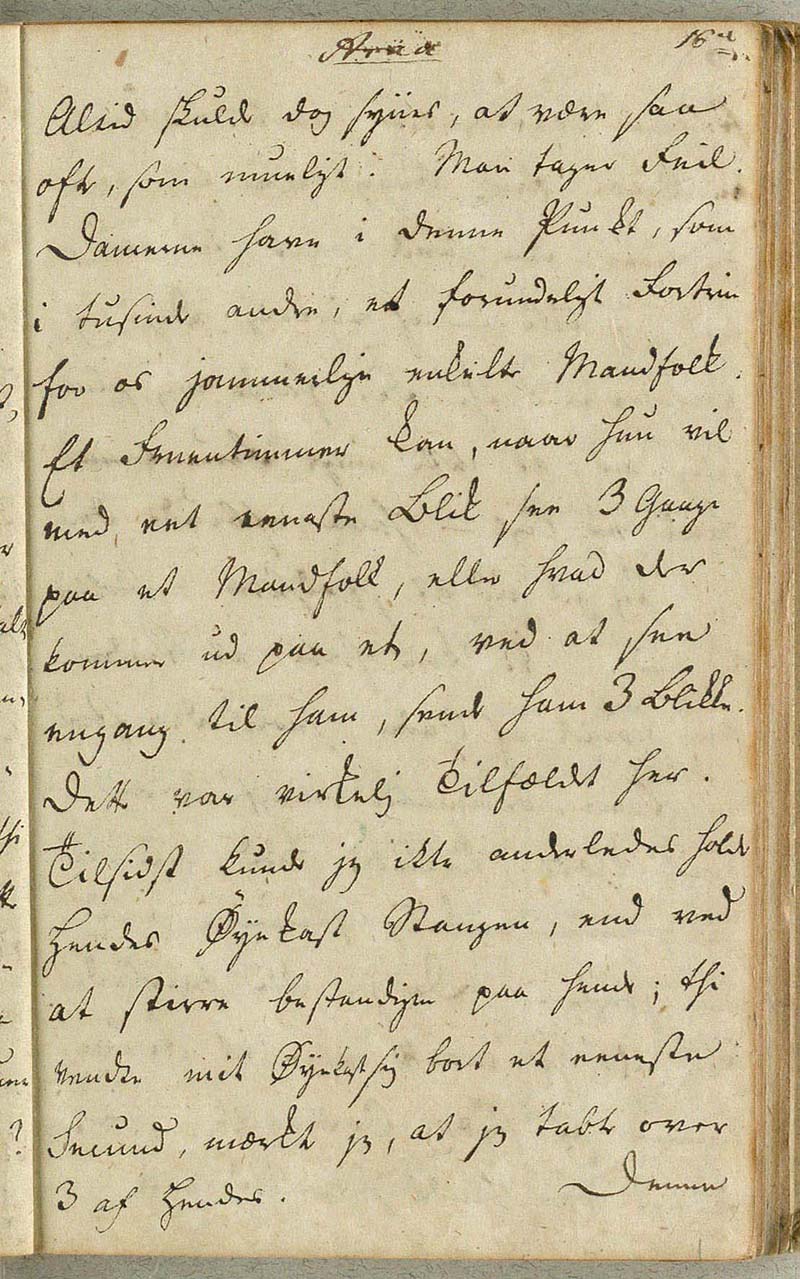 16
Altid skulde dog synes, at være saa
ofte, som mueligt. Man tager Feil.
Damerne have i denne Punkt, som
i tusinde andre, et forunderligt Fortrin
for os jammerlige enkelte Mandfolk.
Et Fruentimmer kan, naar hun vil
med eet eeneste Blik see 3 Gange
paa et Mandfolk, eller hvad der
kommer ud paa et, ved at see
engang til ham, sende ham 3 Blikke.
Dette var virkelig Tilfældet her.
Tilsidst kunde jeg ikke anderledes holde
hendes Øyekast Stangen, end ved
at stirre bestandigen paa hende; thi
vendte mit Øyekast sig bort et eeneste
Secund, mærkte jeg, at jeg tabte over
3 af hendes.
Denne